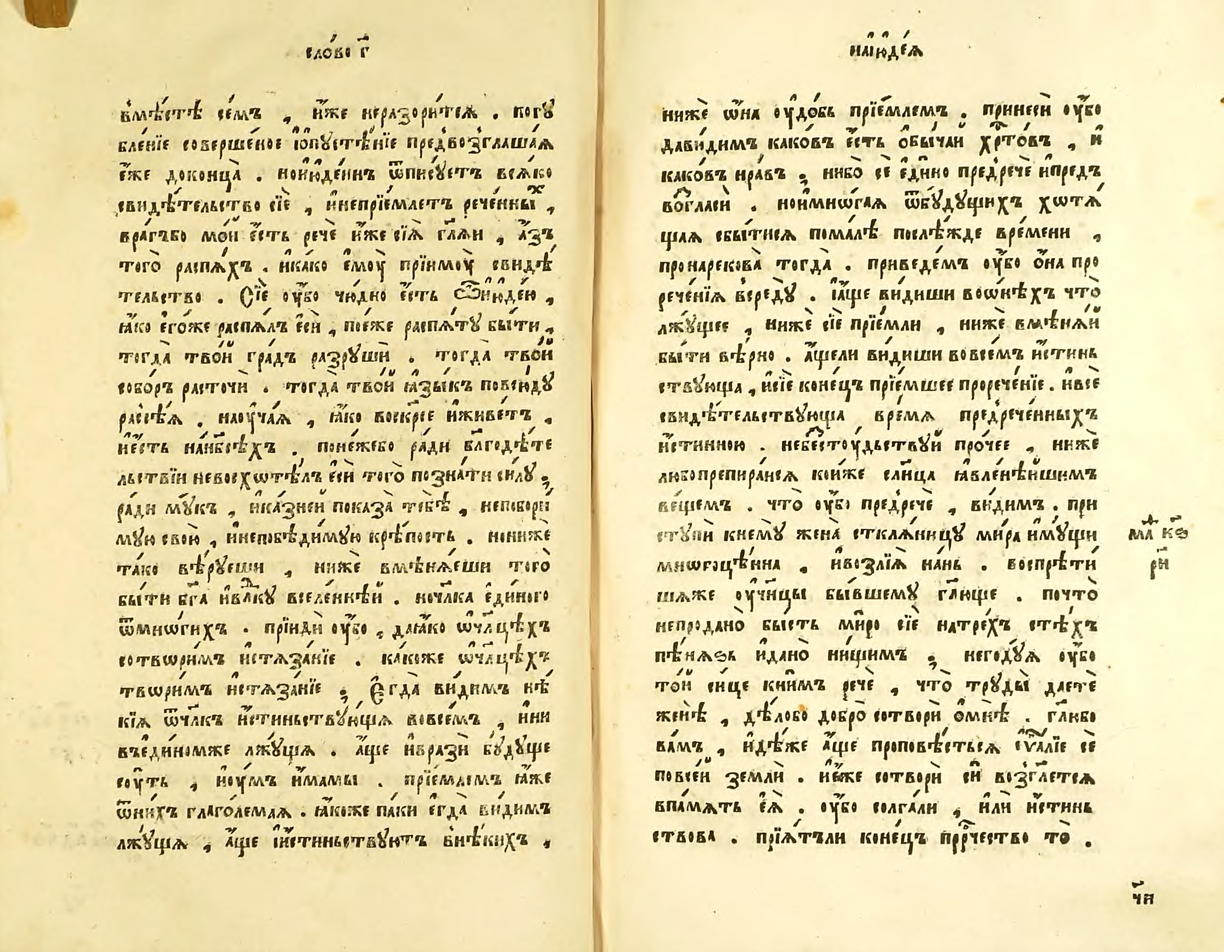 сло́во г҃
вмѣ́стѣ се́мъ , и҆́же неразори́тсѧ . погꙋ
бле́нїе соверше́ное і҆ѻпꙋстѣ́нїе пре́двоꙁглаша́ѧ
є҆́же доконца̀ . нои҆юде́инъ ѿпи́сꙋетъ всѧ́ко
свидѣ́тельство сїѐ , и҆непрїе́млетъ рече́нныⷯ ,
вра́гъбо мо́и є҆́сть речѐ и҆́же сїѧ̀ гл҃ѧи , а҆́зъ
того̀ распѧ́хъ . и҆ка́ко є҆моꙋ̀ прїимоꙋ̀ свидѣ́
тельство . Сїѐ оу҆́бо чю́дно є҆́сть ѽи҆юде́ю ,
ꙗ҆́ко є҆го́же распѧ́лъ є҆сѝ , по́еже распѧ́тꙋ бы́ти ,
тогда̀ тво́й гра́дъ раꙁрꙋшѝ . тогда̀ тво́й
собо́ръ расточѝ . тогда̀ тво́й ꙗ҆ꙁы́къ повсю́дꙋ
разсѣ́ѧ . наоу҆ча́ѧ , ꙗ҆́ко воскр҃се и҆живе́тъ ,
и҆е́сть нанбс҃ѣхъ . поне́жебо ра́ди бл҃годѣ́те
льствїи невосхотѣ́лъ є҆сѝ того̀ поꙁна́ти си́лꙋ ,
ра́ди мꙋ́къ , и҆ка́ꙁней пока́ꙁа тебѣ̀ , непобори́
мꙋю свою̀ , и҆непобѣди́мꙋю крѣ́пость . нони́же
та́ко вѣ́рꙋеши , ни́же вмѣнѧ́еши того̀
бы́ти бг҃а и҆влⷣкꙋ вселе́ннѣй . ночл҃ка є҆ди́ного
ѿмно́гихъ . прїидѝ оу҆́бо , даꙗ҆́ко ѡ҆чл҃цѣхъ
сотвори́мъ и҆стѧꙁа́нїе . како́же ѡ҆чл҃цѣхъ
твори́мъ и҆стѧꙁа́нїе ; Є҆гда̀ ви́димъ нѣ́
кїѧ ѿчл҃къ и҆́стиньствꙋ́ющѧ вовсе́мъ , и҆ни
въеди́номже лжꙋ́щѧ . а҆́ще и҆враꙁѝ бꙋ́дꙋще
соꙋ́ть , и҆оу҆́мъ и҆́мамы . прїе́млемъ ꙗ҆́же
ѿни́хъ глаго́лемаѧ . ꙗ҆́коже па́ки є҆гда̀ ви́димъ
лжꙋ́щѧ , а҆́ще і҆и҆́стиньствꙋютъ внѣ́кихъ ,
наїю҆де́ѧ
ни́же ѡ҆́на оу҆до́бь прїе́млемъ . принесѝ оу҆́бо
дави́димъ како́въ є҆́сть ѻ҆бы́чаи хрⷭ҇то́въ , и҆
како́въ нра́въ ; нибо̀ се є҆ди́но пре́дрече и҆предъ
воꙁгласѝ . нои҆мно́гаѧ ѿбꙋ́дꙋщихъ хотѧ́
щаѧ сбы́тисѧ пома́лѣ послѣ́жде вре́мени ,
пронарекова̀ тогда̀ . приведе́мъ оу҆́бо ѻ҆́на про
рече́нїѧ всредꙋ̀ . і҆а҆́ще ви́диши воѡ҆нѣ́хъ что̀
лжꙋ́щее , ни́же сїѐ прїе́мли , ни́же вмѣнѧ́й
бы́ти вѣ́рно . а҆́щели ви́диши вовсе́мъ и҆́стинь
ствꙋюща , и҆сїѐ коне́цъ прїе́мшее прорече́нїе . и҆всѐ
свидѣ́тельствꙋюща вре́мѧ пре́дрече́нныхъ
и҆́стинною . небеꙁстоу҆дствꙋ́й про́чее , ни́же
любопрепира́исѧ ко́иже сл҃нца ꙗ҆вле́нѣ́йшимъ
ве́щемъ . что̀ оу҆́бо пре́дрече , ви́димъ . при
стꙋпѝ кнемꙋ̀ жена̀ сткла́ницꙋ ми́ра и҆мꙋ́щи
многоцѣ́нна , и҆воꙁлїѧ̀ на́нь . воспрѣти́
ша́же оу҆чн҃цы бы́вшемꙋ гл҃юще . почто̀
непродано̀ бы́сть ми́ро сїѐ натре́хъ стѣ́хъ
пѣ́нѧꙃь и҆дано̀ ни́щимъ ; негодꙋ́ѧ оу҆́бо
то́й си́це кни́мъ речѐ , что̀ трꙋды̀ даетѐ
женѣ̀ , дѣ́лобо добро̀ сотворѝ ѻ҆мнѣ̀ . гл҃ибо
ва́мъ , и҆дѣ́же а҆́ще проповѣ́стьсѧ є҆ѵⷢ҇лїе сѐ
повсе́й ꙁемлѝ . и҆е҆́же сотворѝ сѝ воꙁгл҃етсѧ
впа́мѧть є҆ѧ̀ . оу҆́бо солга́ли , и҆лѝ и҆́стинь
ствова . прїѧ́тъли коне́цъ пррⷪ҇чество то̀ .
маⷴ кꙃ
рн҃
чн҃